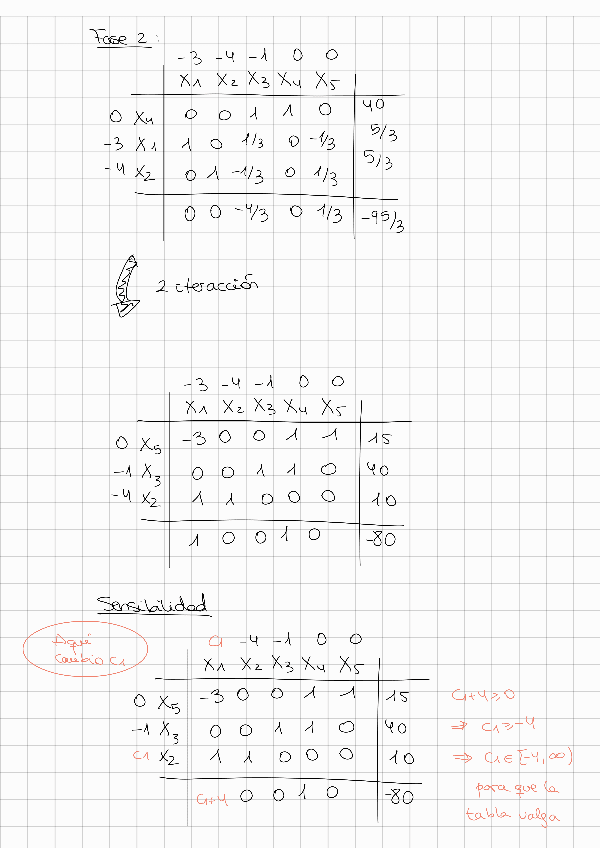 Fase 2:
-3 -4 -1 0 0
X1 X2 X3 X4 X5
0 X4 0 0 1 1 0 40
-3 X1 1 0 1/3 0 -1/3 5/3
-4 X2 0 1 -1/3 0 1/3 5/3
0 0 -4/3 0 1/3 -95/3
2 iteracción
-3 -4 -1 0 0
X1 X2 X3 X4 X5
0 X5 -3 0 0 1 1 15
-1 X3 0 0 1 1 0 40
-4 X2 1 1 0 0 0 10
1 0 0 1 0 -80
Sensibilidad
Aquí
cambio C1
C1 -4 -1 0 0
X1 X2 X3 X4 X5
0 X5 -3 0 0 1 1 15
-1 X3 0 0 1 1 0 40
C1 X2 1 1 0 0 0 10
C1+4 0 0 1 0 -80
C1+4≥0
⇒ C1≥-4
⇒ C1∈[-4,∞)
para que la
tabla valga